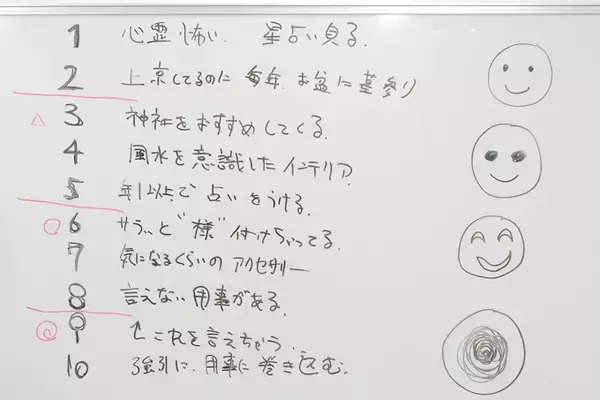 1 心霊怖い、 星占い見る。
2 上京してるのに 毎年、お盆に墓参り
△ 3 神社をおすすめしてくる。
4 風水を意識したインテリア
5 年1以上で占いをうける。
○ 6 サラッと"様"付けちゃってる。
7 気になるくらいのアクセサリー
8 言えない用事がある。
◎ 9 ↑これを言えちゃう。
10 強引に、用事に巻き込む。